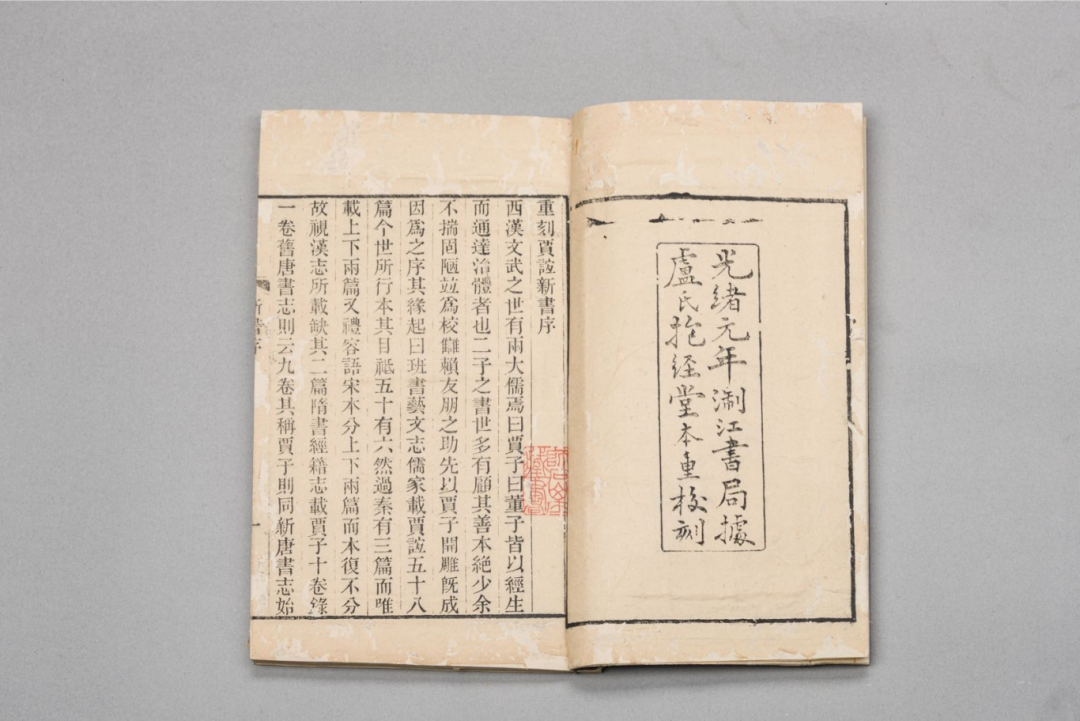 光緒元年浙江書局據
盧氏抱經堂本重校刻
重刻賈誼新書序
西漢文武之世有兩大儒焉曰賈子曰董子皆以經生
而通達治體者也二子之書世多有顧其善本絶少余
不揣固陋竝爲校讎賴友朋之助先以賈子開雕旣成
因爲之序其緣起曰班書藝文志儒家載賈誼五十八
篇今世所行本其目祗五十有六然過秦有三篇而唯
載上下兩篇又禮容語宋本分上下兩篇而本復不分
故視漢志所載缺其二篇隋書經籍志載賈子十卷錄
一卷舊唐書志則云九卷其稱賈子則同新唐書志始
新書序
一